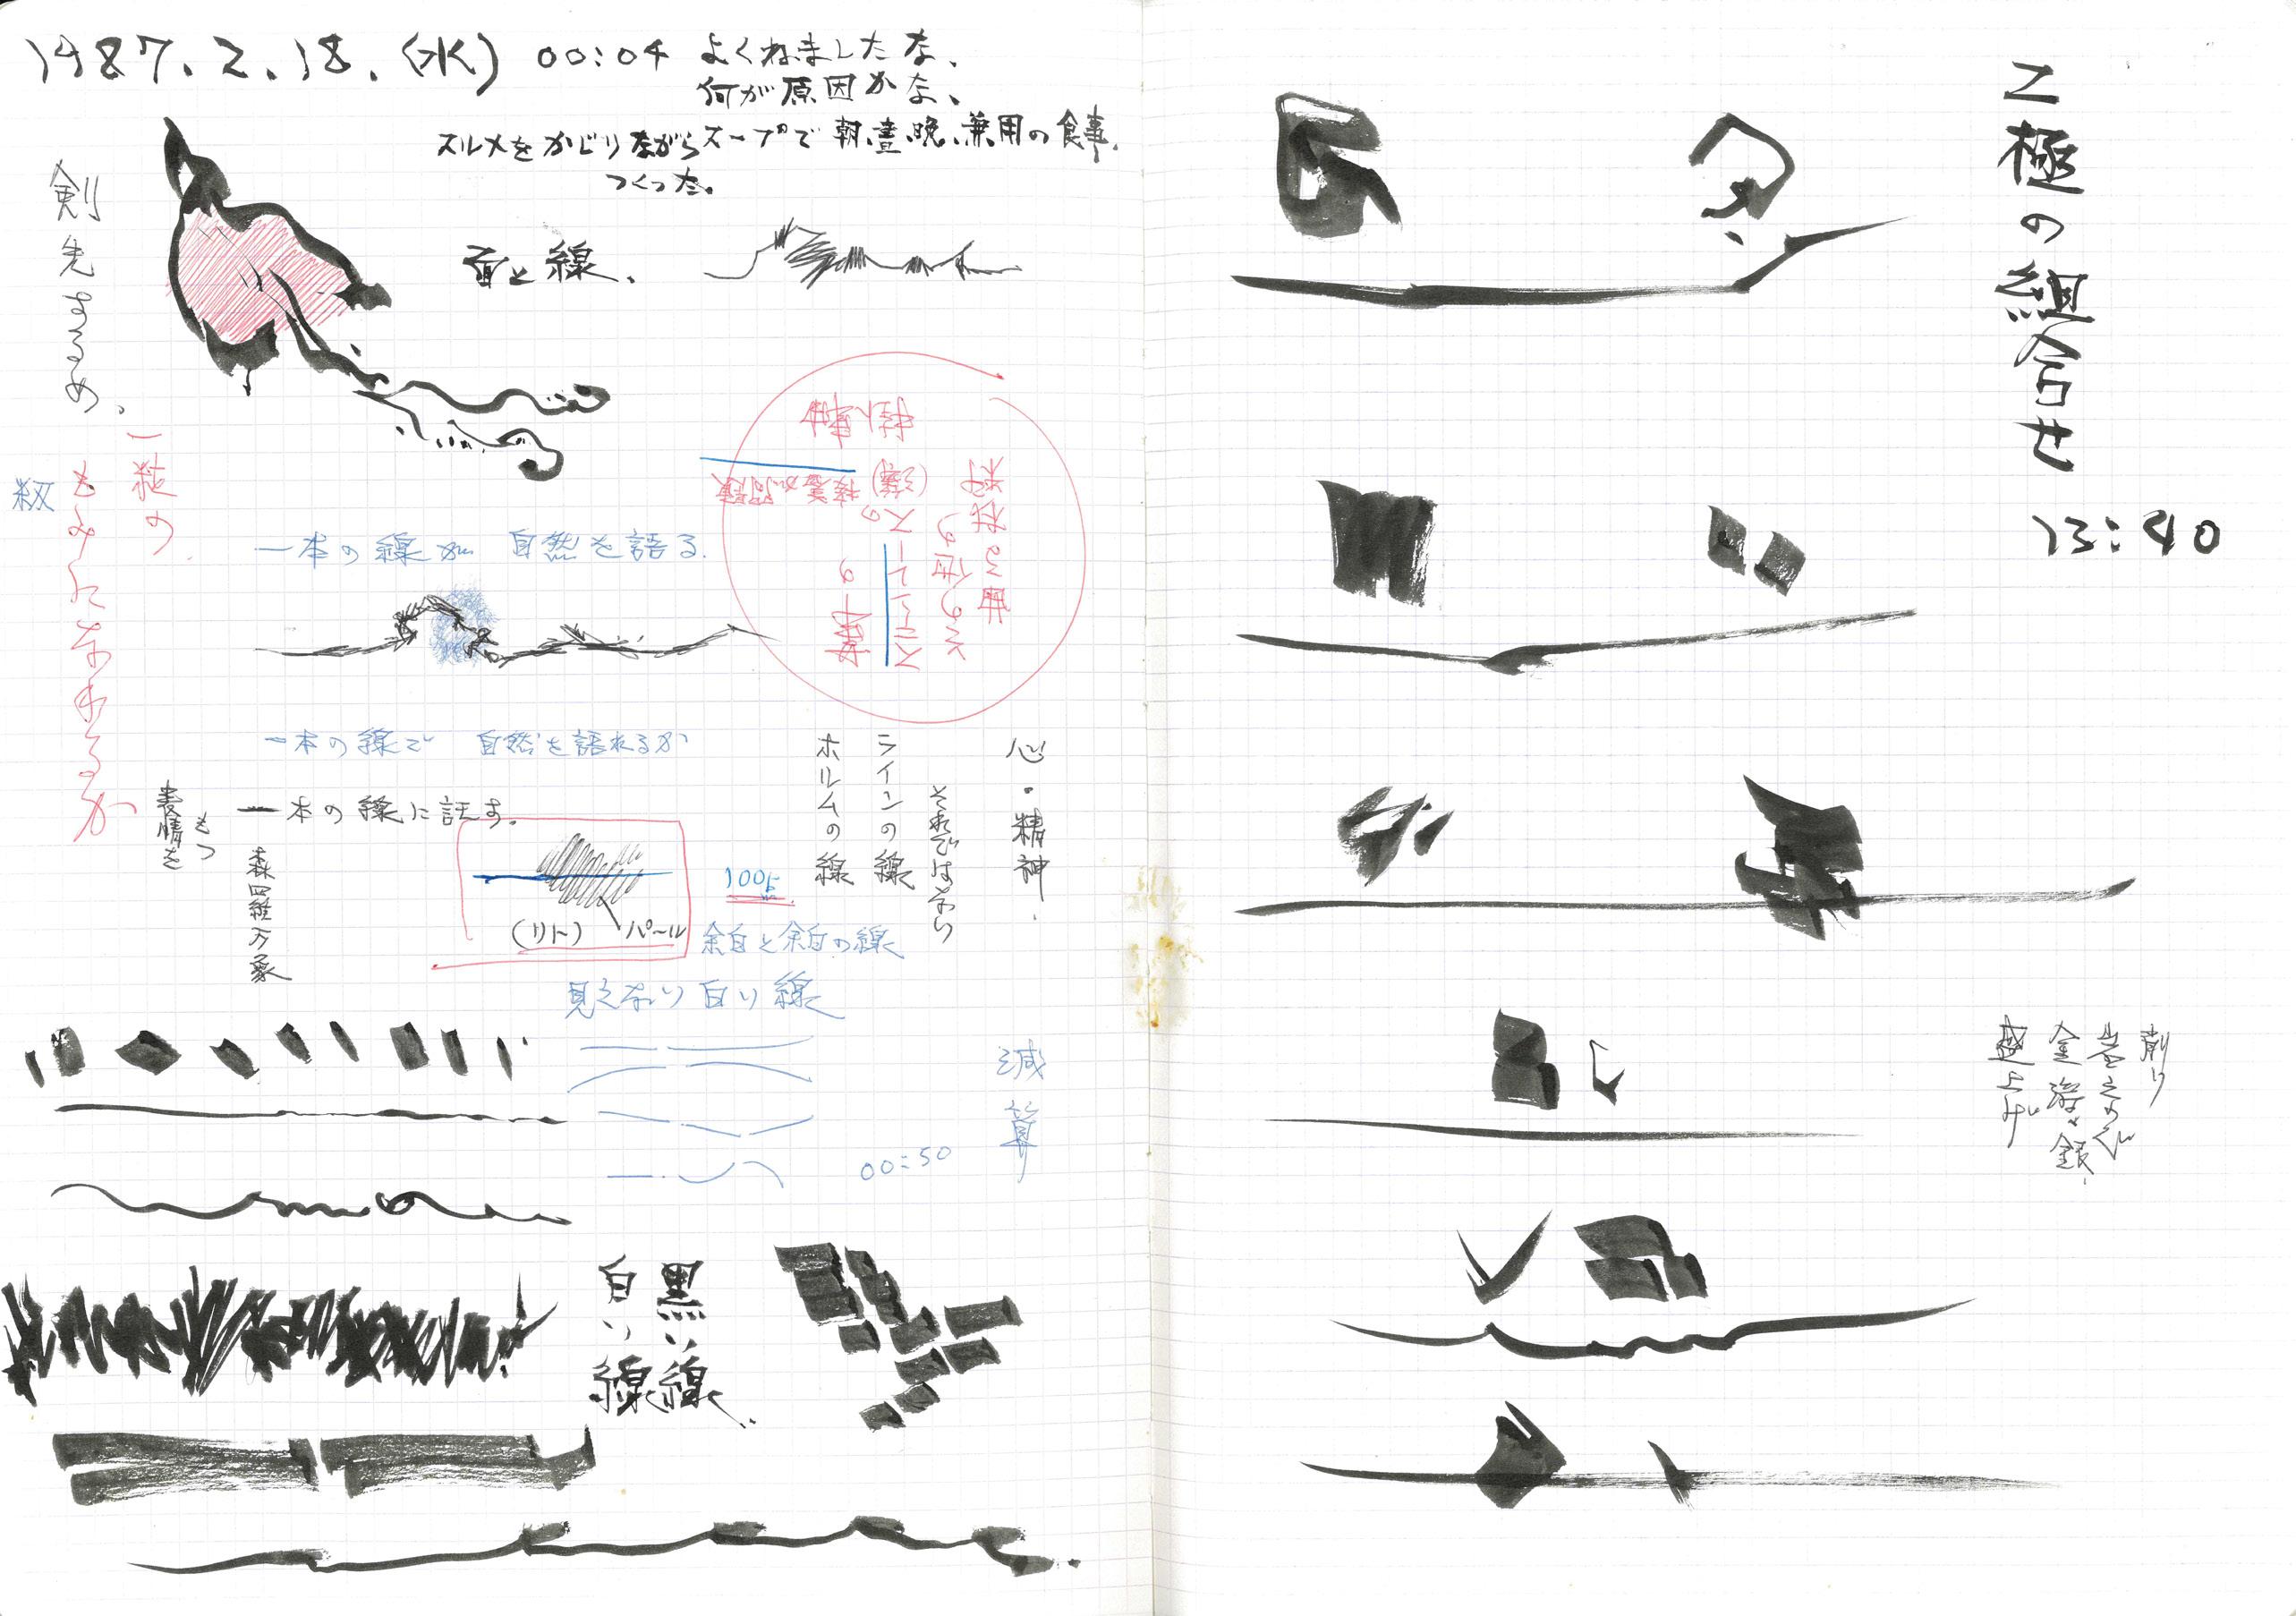 1987.2.18.(水) 00:04 よくねましたな、
何が原因かな、
スルメをかじりながらスープで朝、昼、晩、兼用の食事、
つくった。
剣先するめ、
面と線、
一粒の
もみになれるか
籾
一本の線が 自然を語る.
一本の線で 自然を語れるか
一本の線に託す。
表情を
もつ
森羅万象
(リト)
パール
100部
余白と余白の線
見えない白い線
心・精神.
それではない
ラインの線
ホルムの線
減算
00:50
黒い線
白い線
二極の組合せ
13:40
削り
岩えのぐ
金泥、銀、
盛上げ